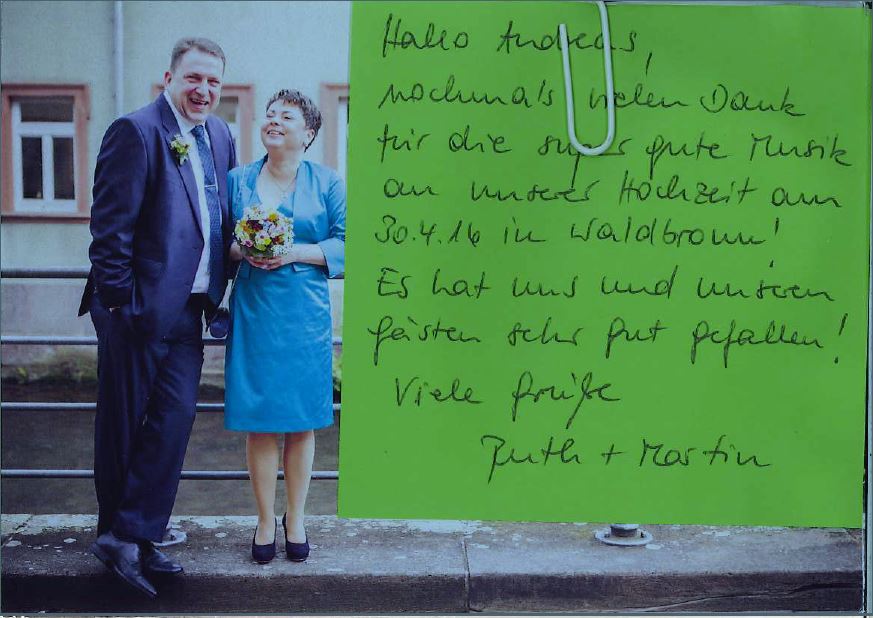 Hallo Andreas,
nochmals vielen Dank
für die super gute Musik
an unserer Hochzeit am
30.4.16 in Waldbronn!
Es hat uns und unseren
Gästen sehr gut gefallen!
Viele Grüße
Ruth + Martin